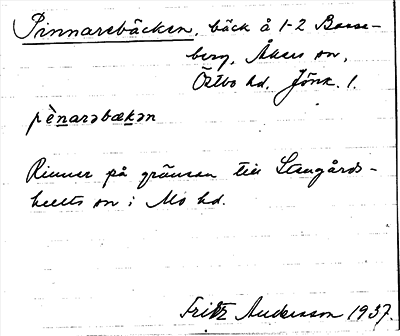 Pinnarebäcken, bäck å 1-2 Bosse-
berg, Åkers sn,
Östbo hd. Jönk. l.
pènarəbækən
Rinner på gränsen till Stengårds-
hults sn i Mo hd.
Fritz Andersson 1937.